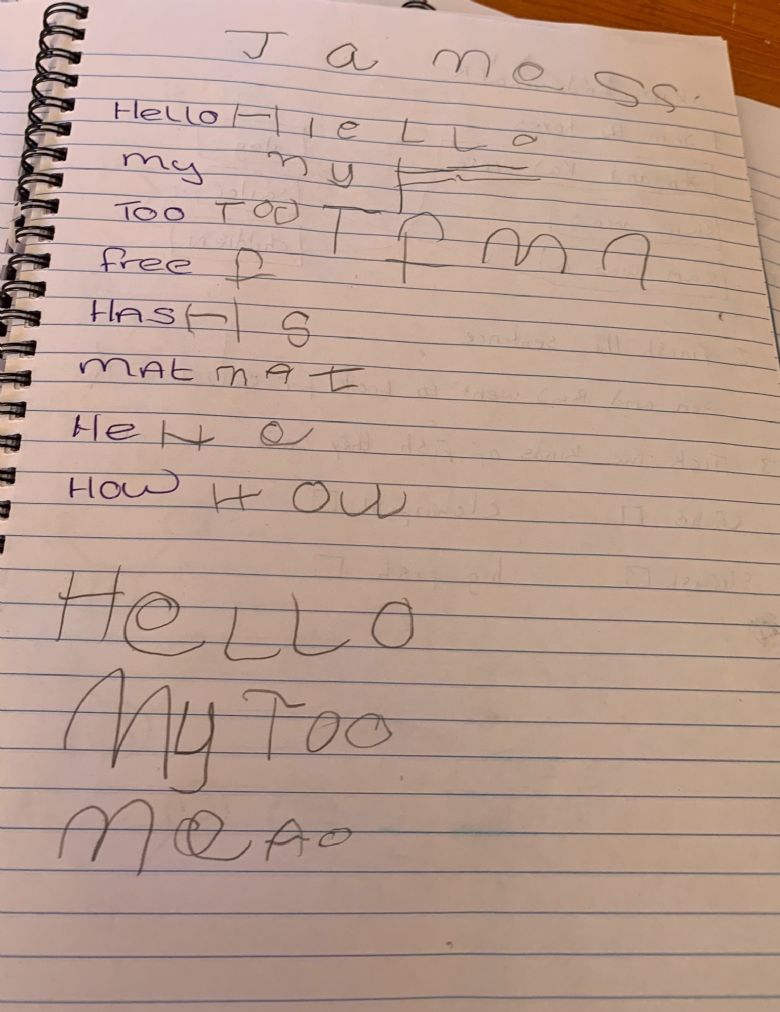 J a m e ss.
Hello H I e L L o
my m y F
Too TOO T f m n
free f
HAS H S
MAt m A t
He H e
HOW H OW
HeLLO
My Too
me Ao